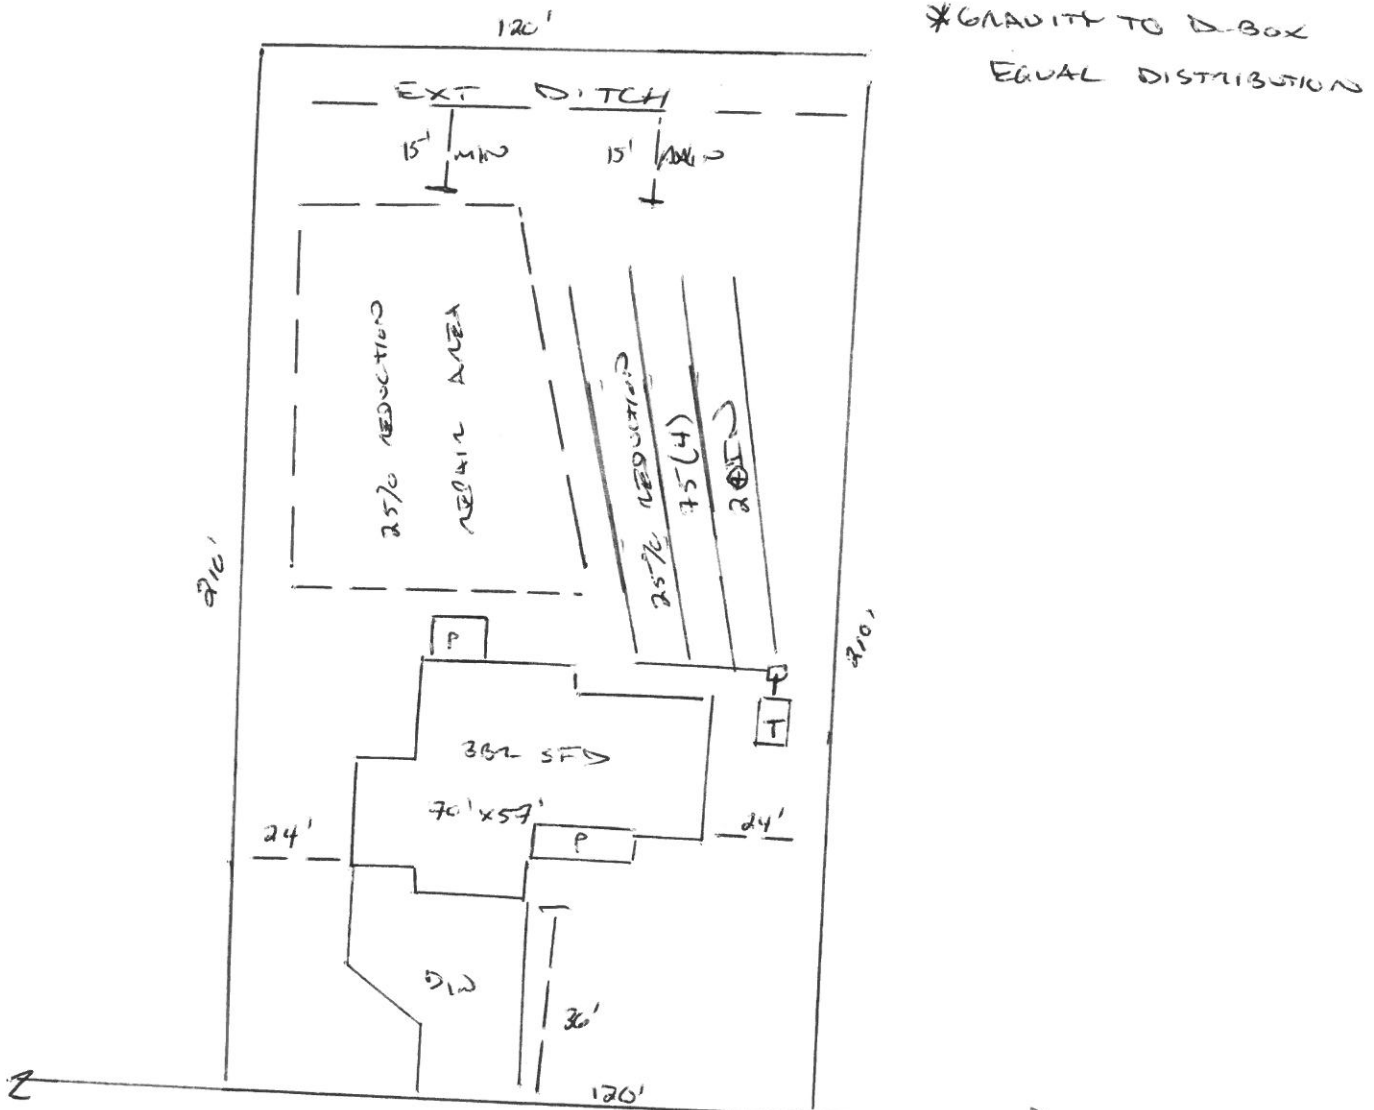 *GRAVITY TO D-BOX
EQUAL DISTRIBUTION
120'
EXT DITCH
15' MIN
15' MIN
25% REDUCTION
REPAIR AREA
25% REDUCTION
75(4)
210'
210'
P
T
3BR SFD
70'x57'
24'
24'
P
D/W
36'
120'